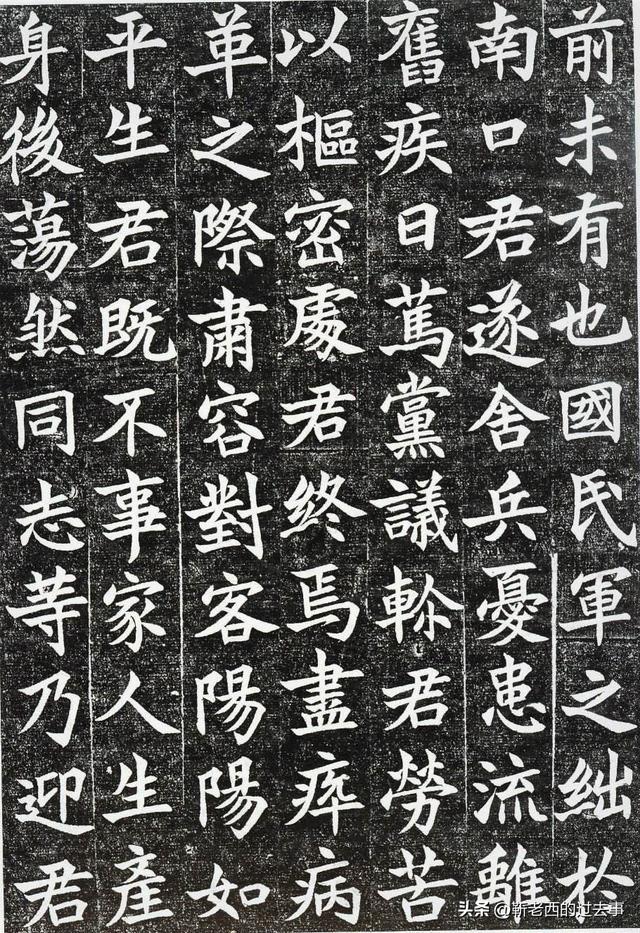 前未有也國民軍之絀於
南口君遂舍兵憂患流離
舊疾日篤黨議軫君勞苦
以樞密處君終焉盡瘁病
革之際肅容對客陽陽如
平生君既不事家人生產
身後蕩然同志等乃迎君
头条 @靳老西的过去事